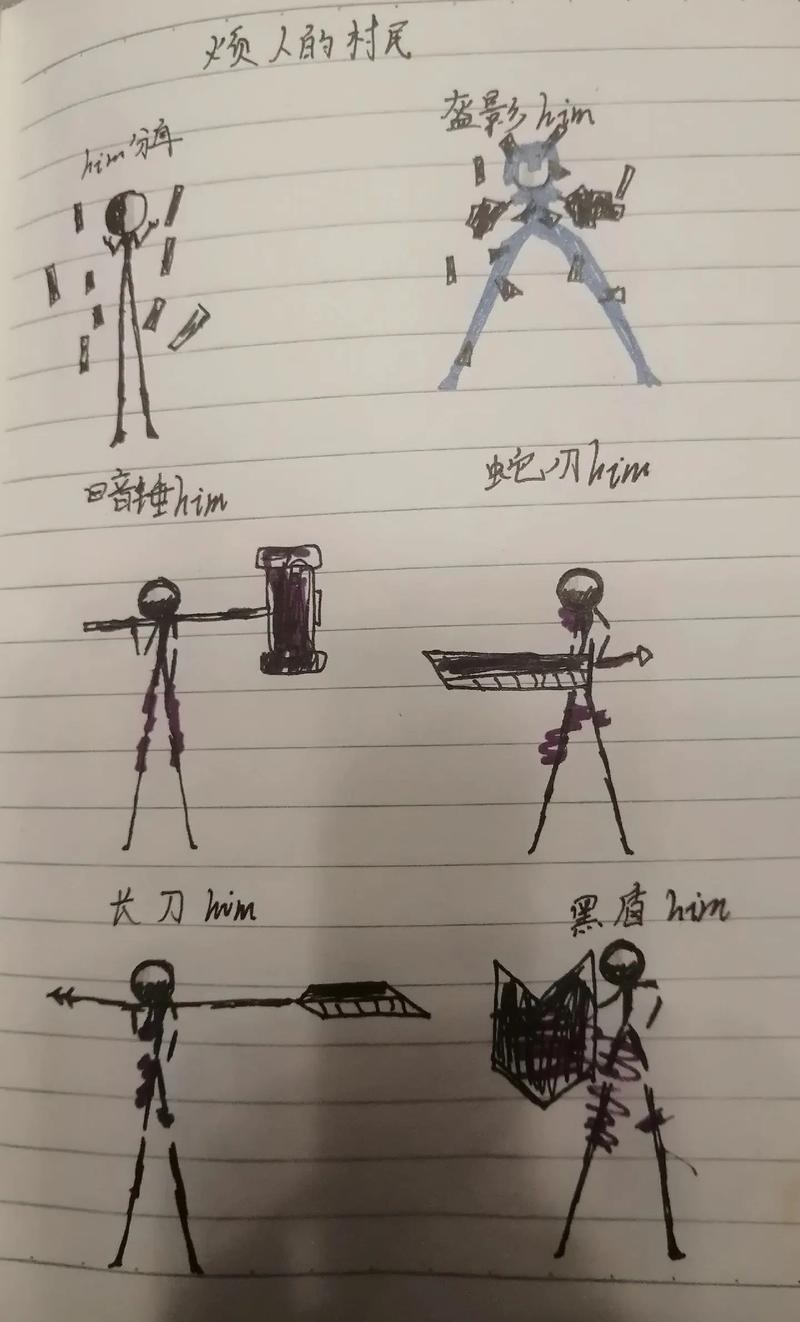 烦人的村民
him分身
盔影him
暗锤him
蛇刃him
长刀him
黑盾him